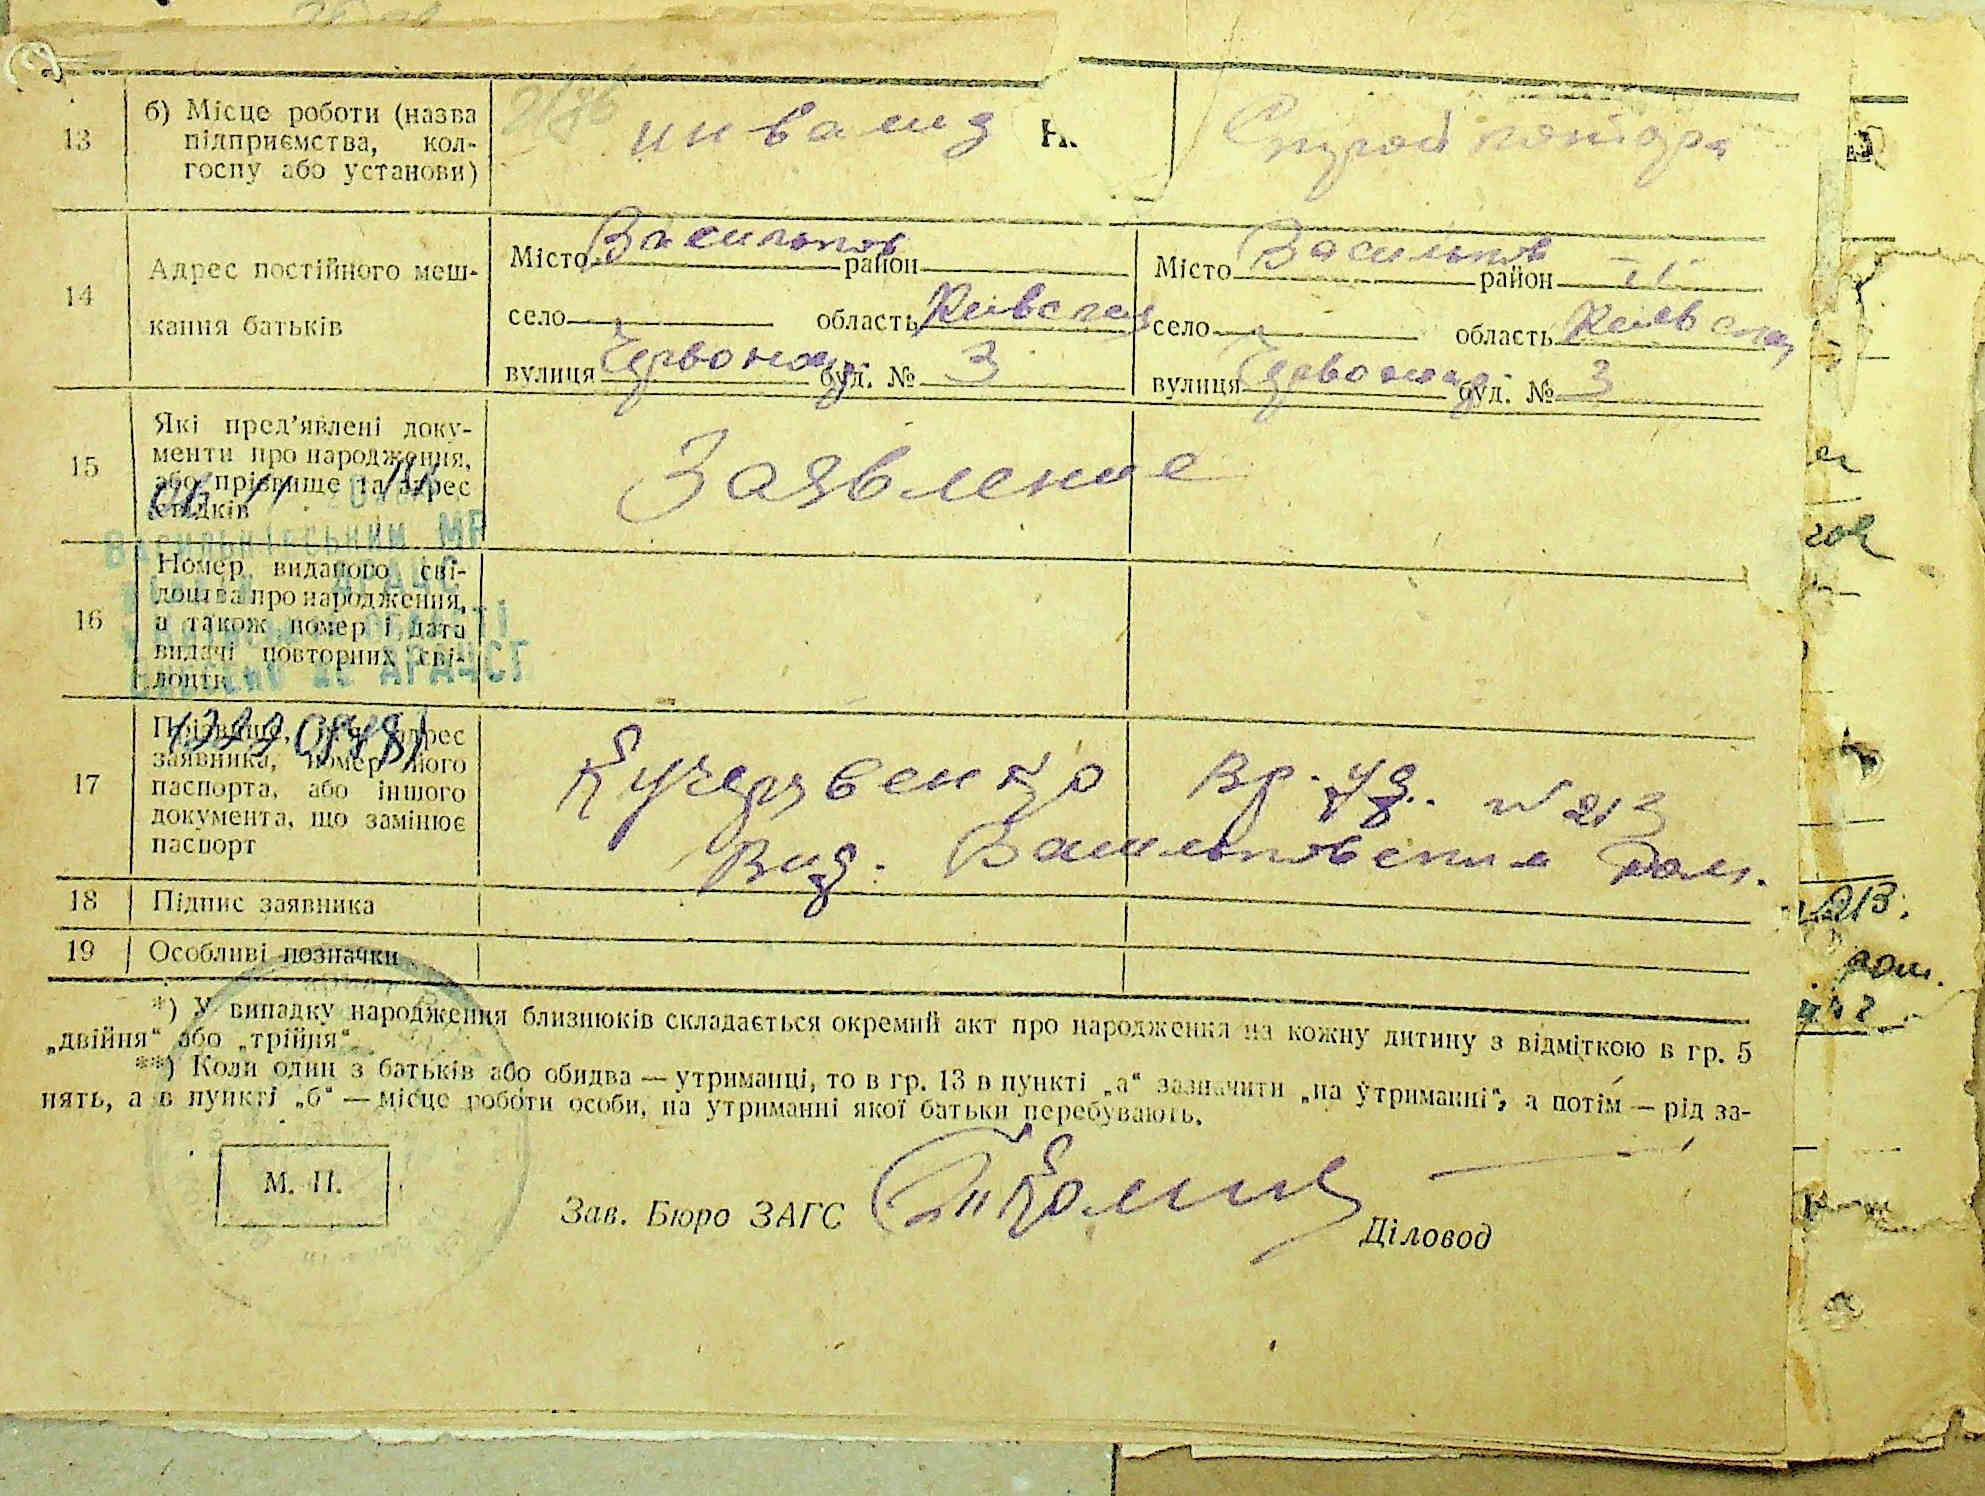 13
б) Місце роботи (назва
підприємства, кол-
госпу або установи)
инвалид
Н.
Строй контора
14
Адрес постійного меш-
кання батьків
Місто Васильков район
село область Киевская
вулиця Червоная буд. № 3
Місто Васильков район
село область Киевская
вулиця Червоная буд. № 3
15
Які пред'явлені доку-
менти про народження,
або прізвище та адрес
свідків
Заявление
16
Номер виданого сві-
доцтва про народження,
а також номер і дата
видачі повторних сві-
доцтв
АРАЦСГ
17
Прізвище, адрес
заявника, номер його
паспорта, або іншого
документа, що замінює
паспорт
Кучерявенко Вр. уд. №213
Выд. Васильковским
18
Підпис заявника
19
Особливі позначки
*) У випадку народження близнюків складається окремий акт про народження на кожну дитину з відміткою в гр. 5
„двійня“ або „трійня“.
**) Коли один з батьків або обидва — утриманці, то в гр. 13 в пункті „а“ зазначити „на утриманні“, а потім — рід за-
нять, а в пункті „б“ — місце роботи особи, на утриманні якої батьки перебувають.
М. П.
Зав. Бюро ЗАГС
Діловод